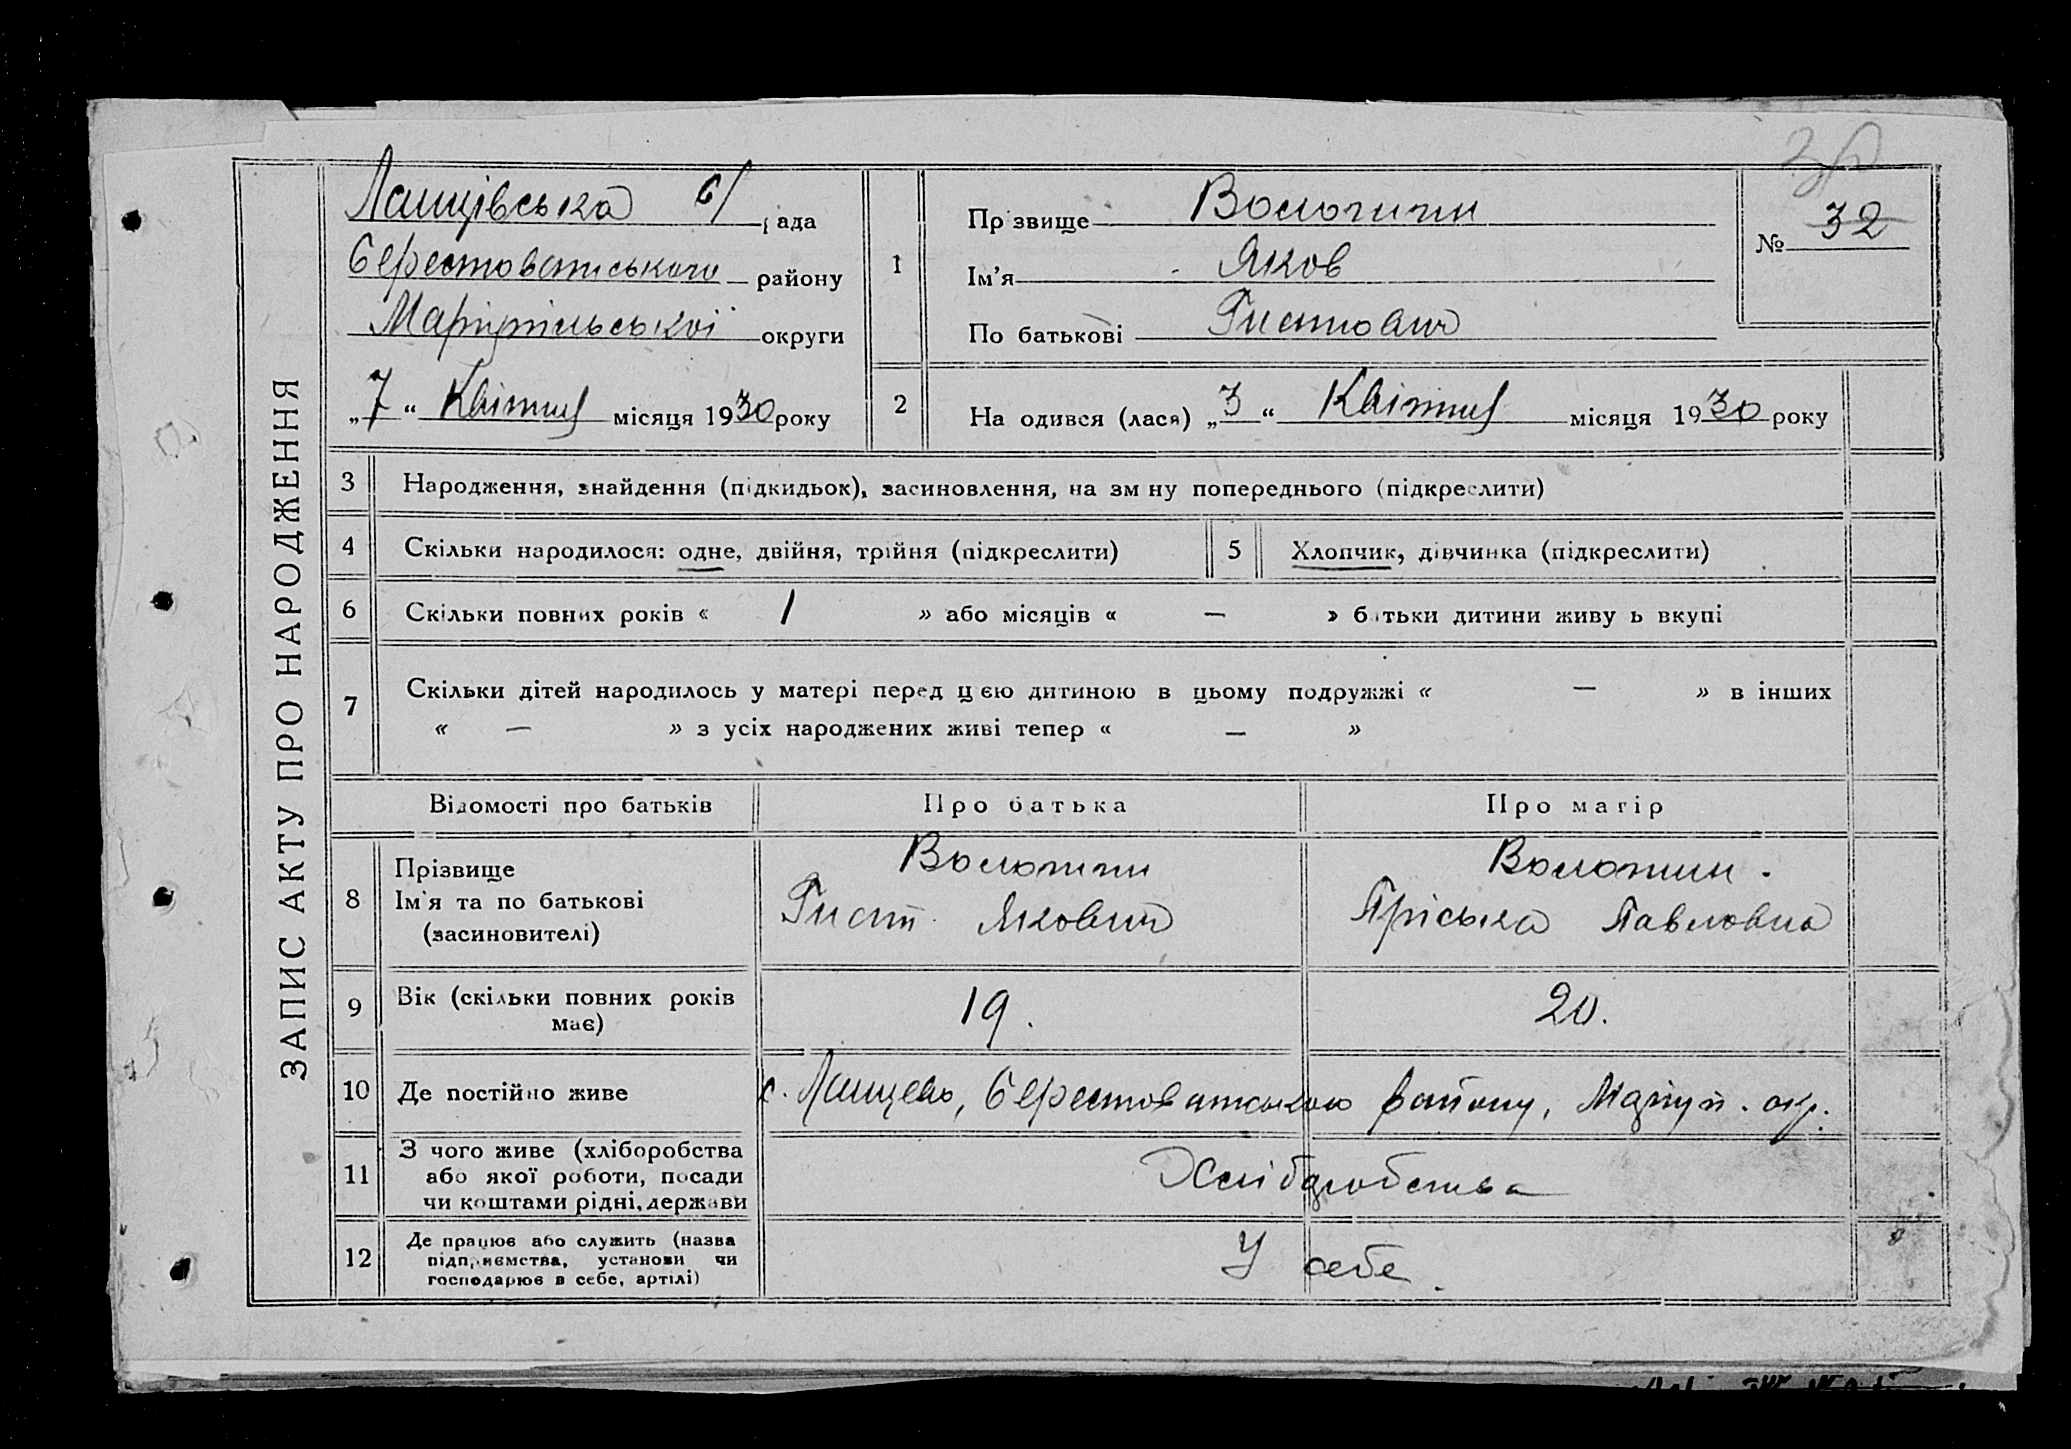 ЗАПИС АКТУ ПРО НАРОДЖЕННЯ
Лащівська с/ рада
Берестоватського району
Маріупільської округи
„7“ Квітня місяця 1930 року
1
Прізвище
Ім'я Яков
По батькові
№ 32
2
На одився (лася) „3“ Квітня місяця 1930 року
3 Народження, знайдення (підкидьок), засиновлення, на зм ну попереднього (підкреслити)
4 Скільки народилося: одне, двійня, трійня (підкреслити) 5 Хлопчик, дівчинка (підкреслити)
6 Скільки повних років « 1 » або місяців « — » батьки дитини живу ь вкупі
7 Скільки дітей народилось у матері перед цією дитиною в цьому подружжі « — » в інших
« — » з усіх народжених живі тепер « — »
Відомості про батьків Про батька Про матір
8 Прізвище
Ім'я та по батькові
(засиновителі)
Якович
Пріська Павловна
9 Вік (скільки повних років
має)
19. 20.
10 Де постійно живе с. Лащево, Берестоватського району, Маріуп. окр.
11 З чого живе (хліборобства
або якої роботи, посади
чи коштами рідні, держави
Хліборобства
12 Де працює або служить (назва
підприємства, установи чи
господарює в себе, артілі)
У себе.